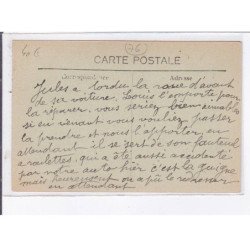 40 €
26
CARTE POSTALE
Correspondance
Adresse
Jules a tordu la roue d'avant
de sa voiture, Louis l'emporte pour
la réparer, vous seriez bien aimable
si en venant vous vouliez passer
la prendre et nous l'apporter, en
attendant il se sert de son fauteuil
à roulettes, qui a été aussi accidenté
par notre auto hier c'est la guigne
mais heureusement on a pu le redresser
en attendant